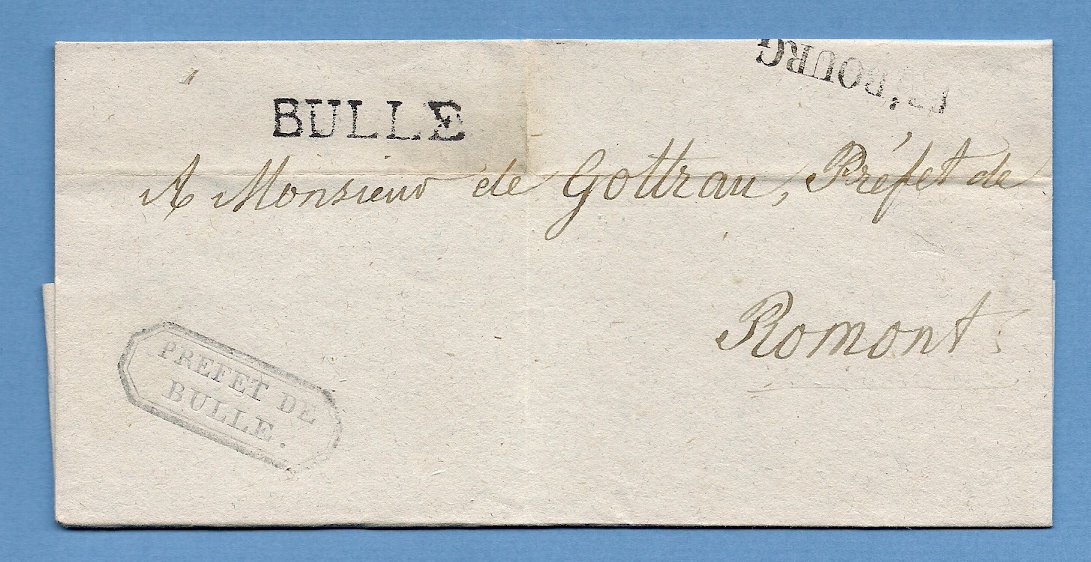 BOURG
BULLE
A Monsieur de Gottrau, Préfet de
Romont.
PREFET DE
BULLE.